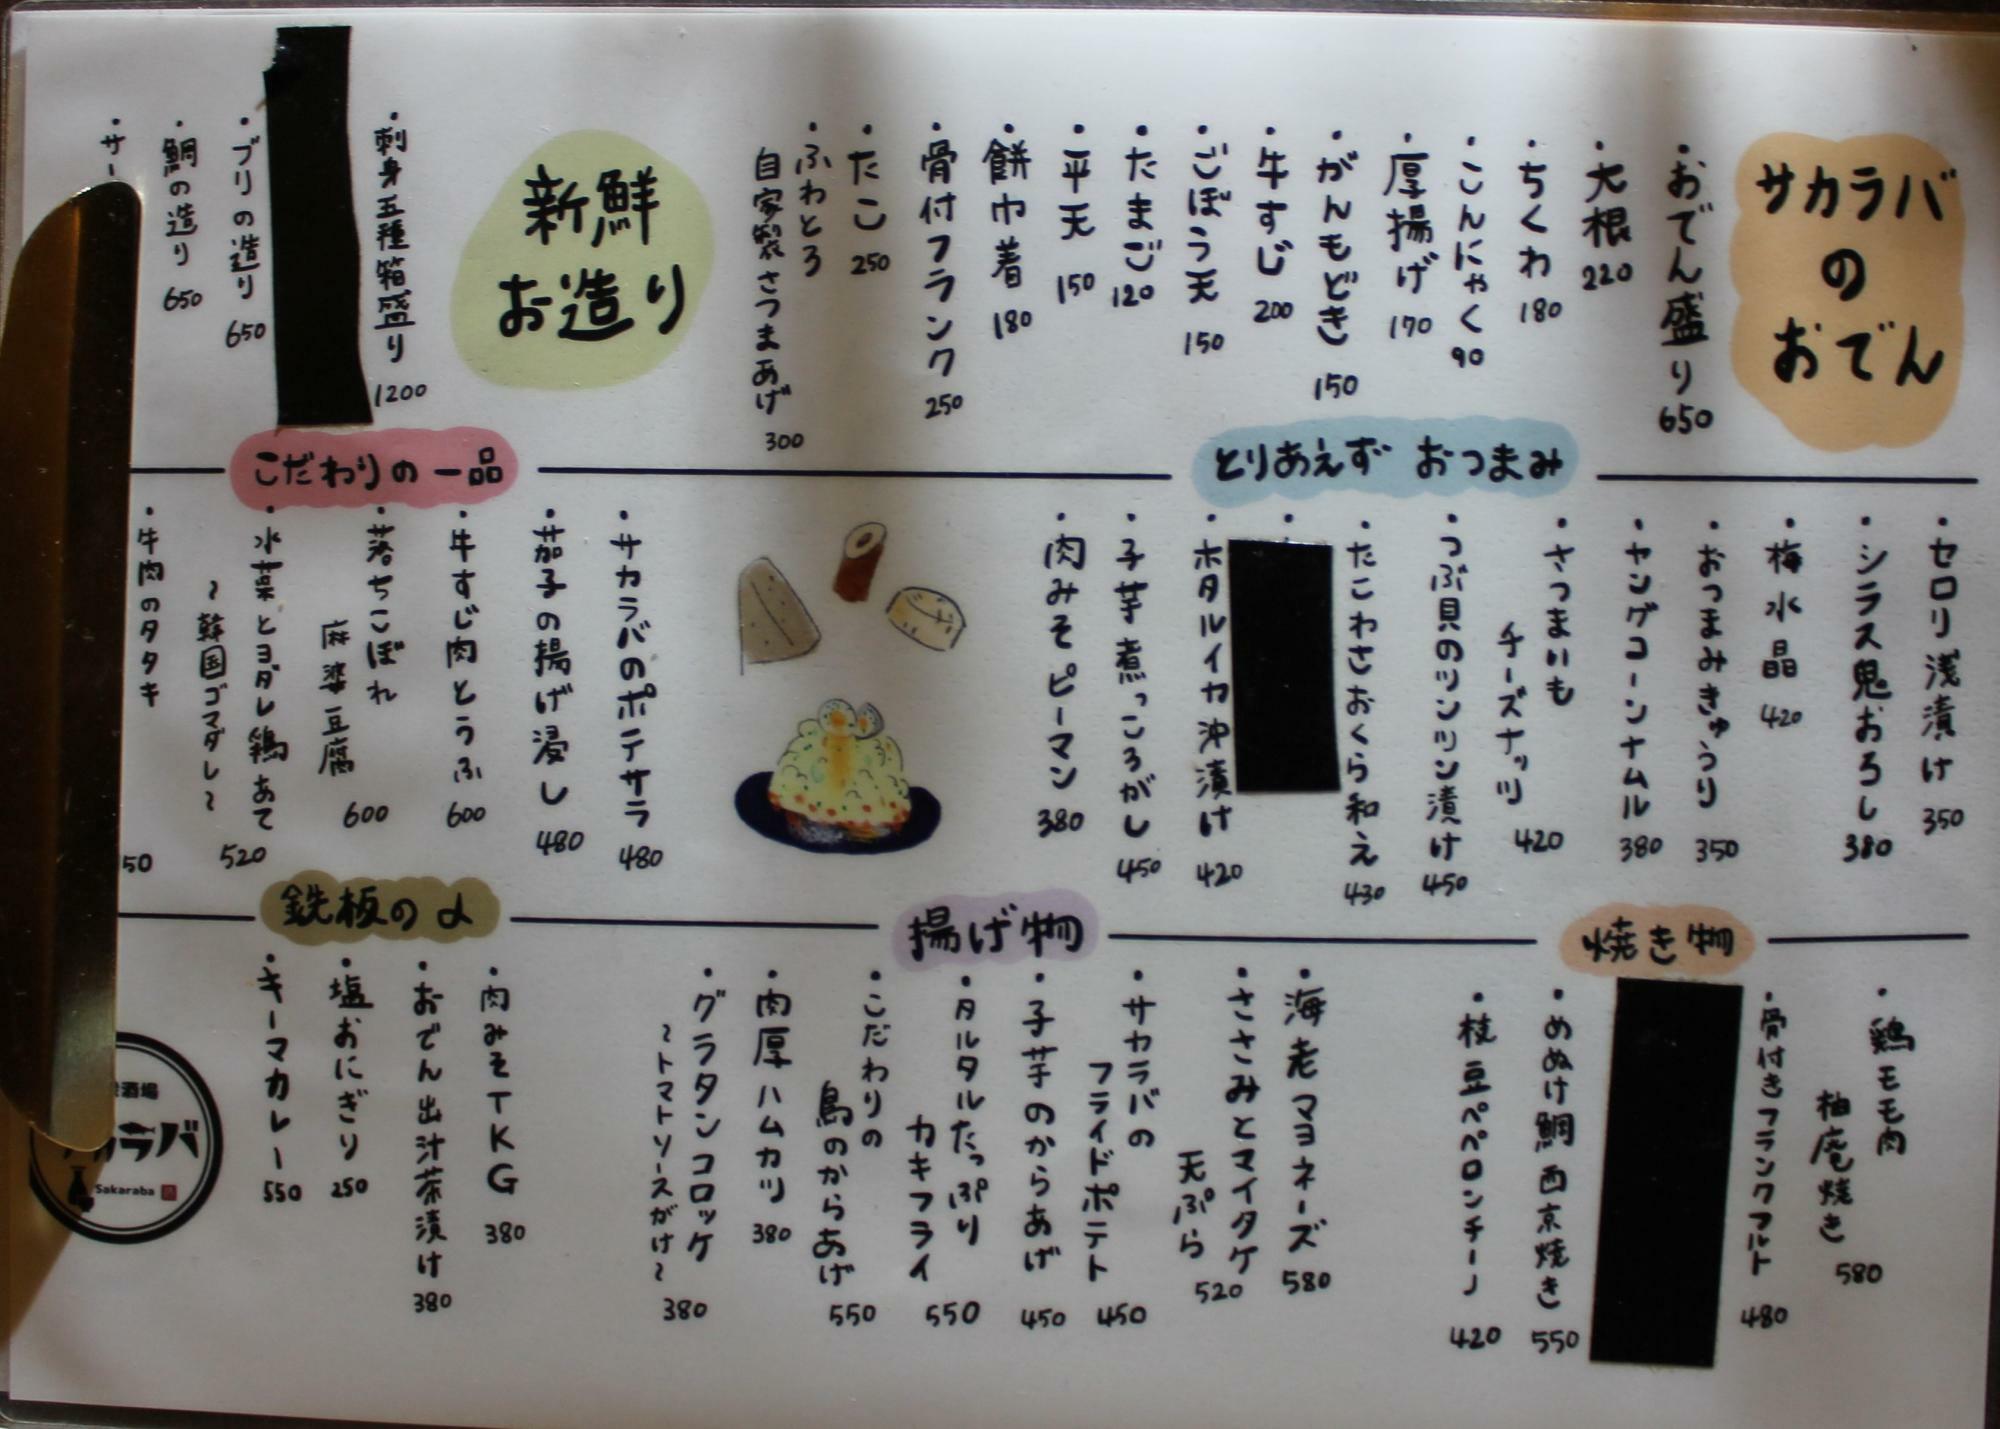 サカラバ
の
おでん
・おでん盛り 650
・大根 220
・ちくわ 180
・こんにゃく 90
・厚揚げ 170
・がんもどき 150
・牛すじ 200
・ごぼう天 150
・たまご 120
・平天 150
・餅巾着 180
・骨付フランク 250
・たこ 250
・ふわとろ
自家製さつまあげ 300
新鮮
お造り
・刺身五種箱盛り 1200
・ブリの造り 650
・鯛の造り 650
・サー
とりあえず おつまみ
・セロリ浅漬け 350
・シラス鬼おろし 380
・梅水晶 420
・おつまみきゅうり 350
・ヤングコーンナムル 380
・さつまいも
チーズナッツ 420
・つぶ貝のツンツン漬け 450
・たこわさおくら和え 430
・ホタルイカ沖漬け 420
・子芋煮っころがし 450
・肉みそピーマン 380
こだわりの一品
・サカラバのポテサラ 480
・茄子の揚げ浸し 480
・牛すじ肉とうふ 600
・落ちこぼれ
麻婆豆腐 600
・水菜とヨダレ鶏あて
~韓国ゴマダレ~ 520
・牛肉のタタキ 50
焼き物
・鶏モモ肉
柚庵焼き 580
・骨付きフランクフルト 480
・めぬけ鯛西京焼き 550
・枝豆ペペロンチーノ 420
揚げ物
・海老マヨネーズ 580
・ささみとマイタケ
天ぷら 520
・サカラバの
フライドポテト 450
・子芋のからあげ 450
・タルタルたっぷり
カキフライ 550
・こだわりの
鳥のからあげ 550
・肉厚ハムカツ 380
・グラタンコロッケ
~トマトソースがけ~ 380
鉄板の〆
・肉みそTKG 380
・おでん出汁茶漬け 380
・塩おにぎり 250
・キーマカレー 550
酒場
カラバ
Sakaraba